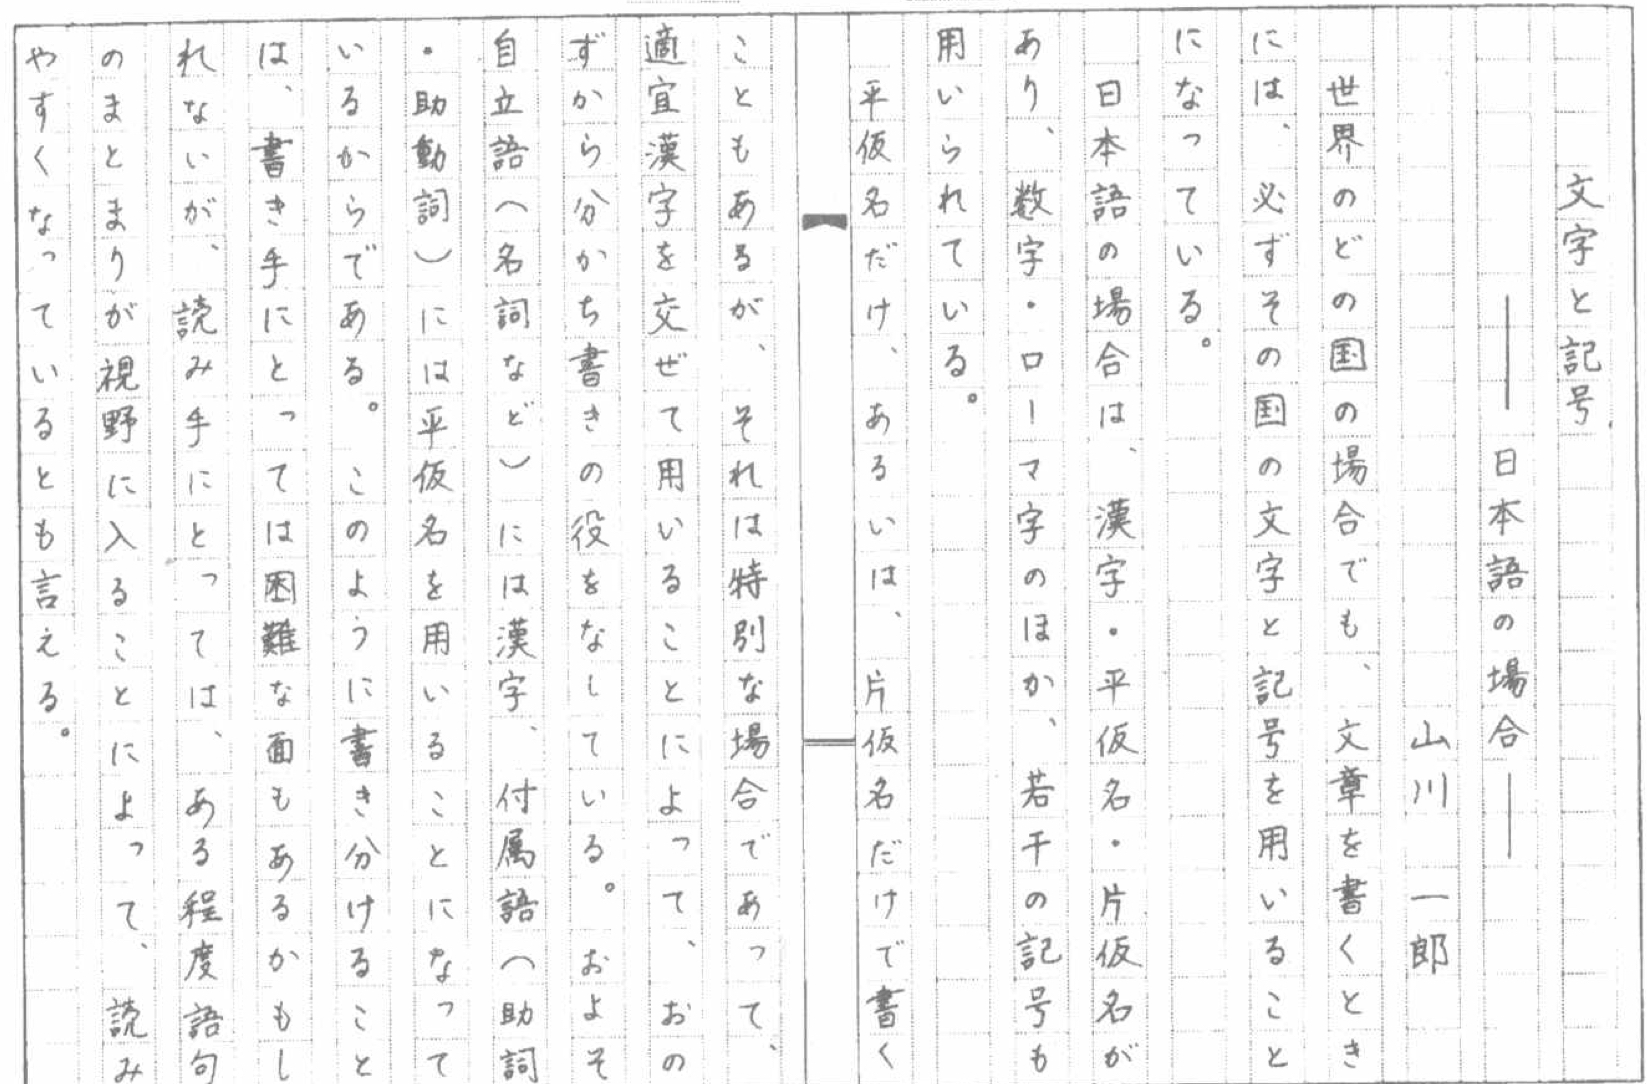 文字と記号
――日本語の場合――
山川一郎
世界のどの国の場合でも、文章を書くとき
には、必ずその国の文字と記号を用いること
になっている。
日本語の場合は、漢字・平仮名・片仮名が
あり、数字・ローマ字のほか、若干の記号も
用いられている。
平仮名だけ、あるいは、片仮名だけで書く
こともあるが、それは特別な場合であって、
適宜漢字を交ぜて用いることによって、おの
ずから分かち書きの役をなしている。およそ
自立語（名詞など）には漢字、付属語（助詞
・助動詞）には平仮名を用いることになって
いるからである。このように書き分けること
は、書き手にとっては困難な面もあるかもし
れないが、読み手にとっては、ある程度語句
のまとまりが視野に入ることによって、読み
やすくなっているとも言える。